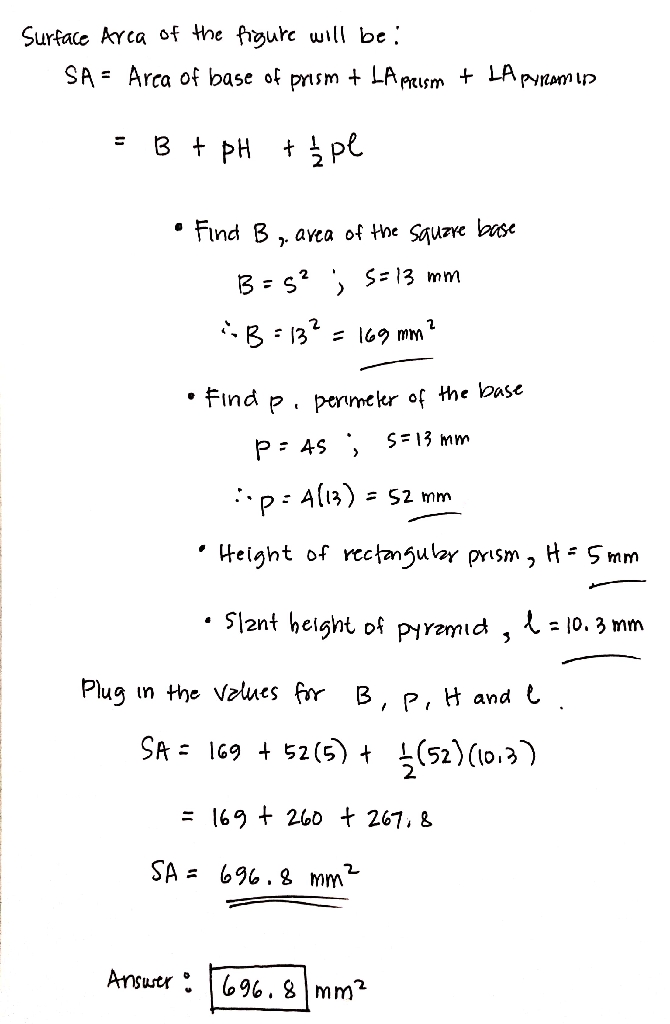 Surface Area of the figure will be:
SA = Area of base of prism + LA PRISM + LA PYRAMID
= B + pH + 1/2 pl
• Find B, area of the square base
B = s² ; s = 13 mm
∴ B = 13² = 169 mm²
• Find p, perimeter of the base
p = 4s ; s = 13 mm
∴ p = 4(13) = 52 mm
• Height of rectangular prism, H = 5 mm
• Slant height of pyramid, l = 10.3 mm
Plug in the values for B, p, H and l.
SA = 169 + 52(5) + 1/2 (52)(10.3)
= 169 + 260 + 267.8
SA = 696.8 mm²
Answer: 696.8 mm²